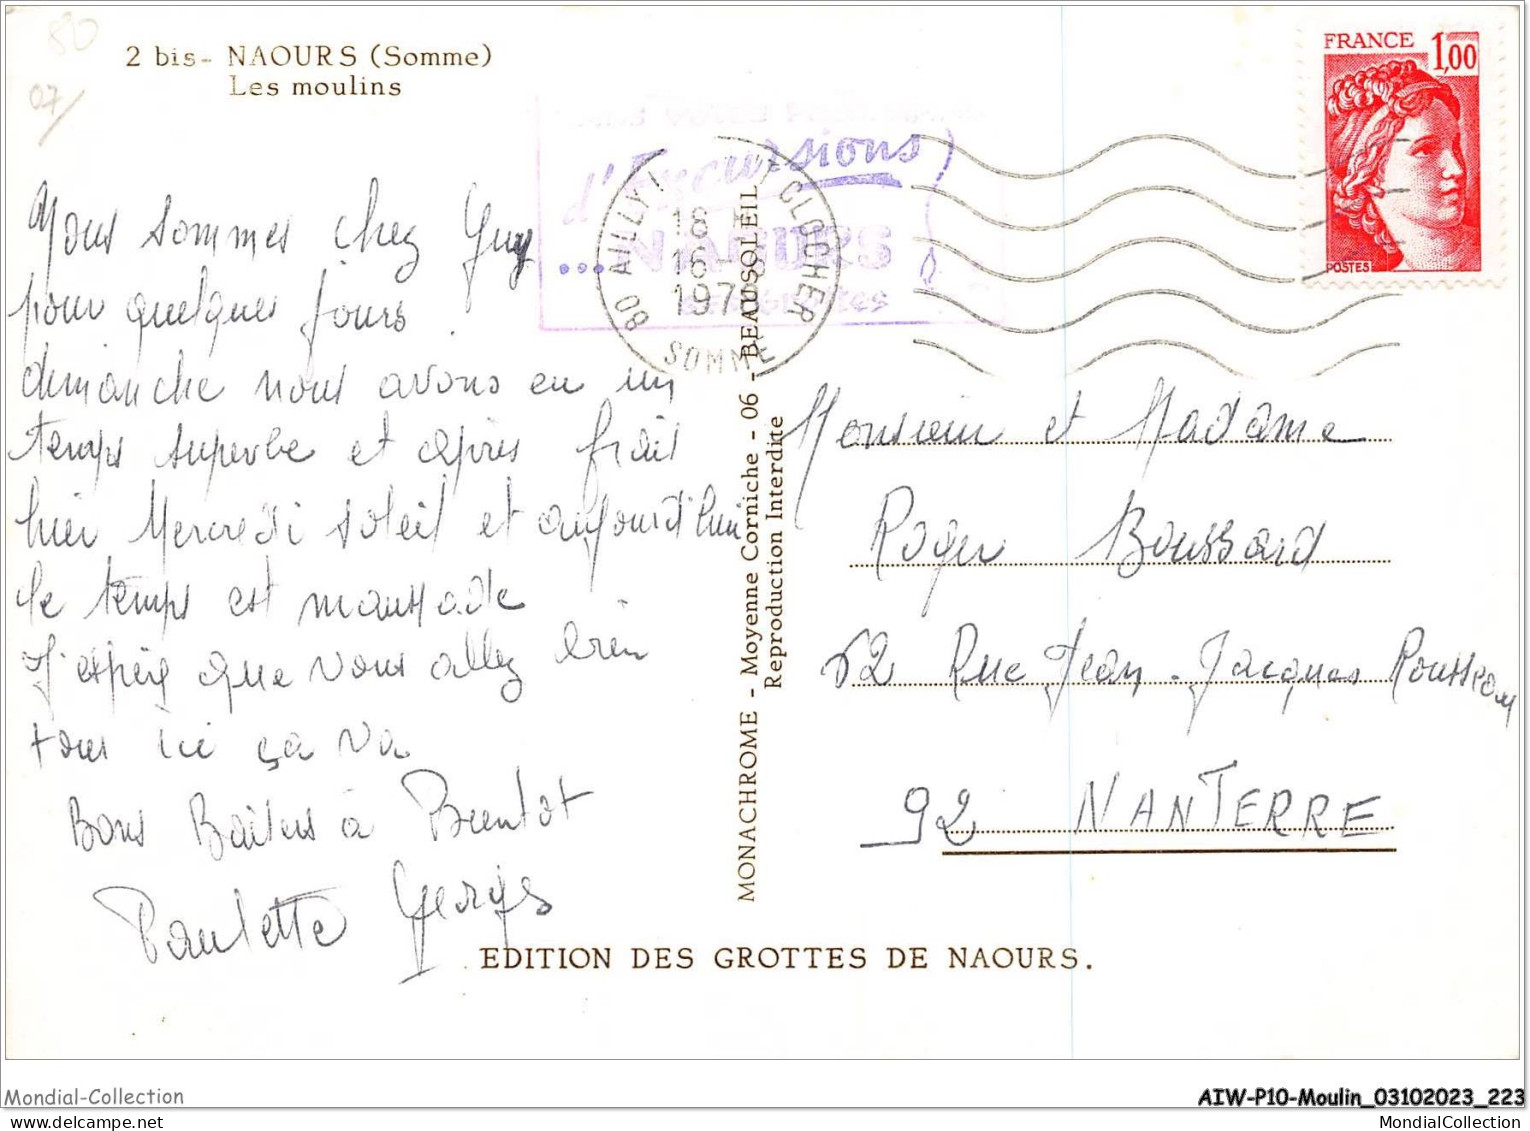 80
07/
2 bis - NAOURS (Somme)
Les moulins
d'Excursions
...NAOURS
80 AILLY LE HT CLOCHER
18 H
16 -
1978
SOMME
FRANCE 1,00
POSTES
Nous sommes chez Guy
pour quelques jours.
dimanche nous avons eu un
temps superbe et après frais
hier Mercredi soleil et aujourd'hui
le temps est maussade
J'espère que vous allez bien
tous ici ça va
Bons Baisers à Bientôt
Paulette Georges
MONACHROME - Moyenne Corniche - 06 - BEAUSOLEIL
Reproduction Interdite
Monsieur et Madame
Roger Boussard
62 Rue Jean-Jacques Rousseau
92 NANTERRE
EDITION DES GROTTES DE NAOURS.
Mondial-Collection
AIW-P10-Moulin_03102023_223
MondialCollection